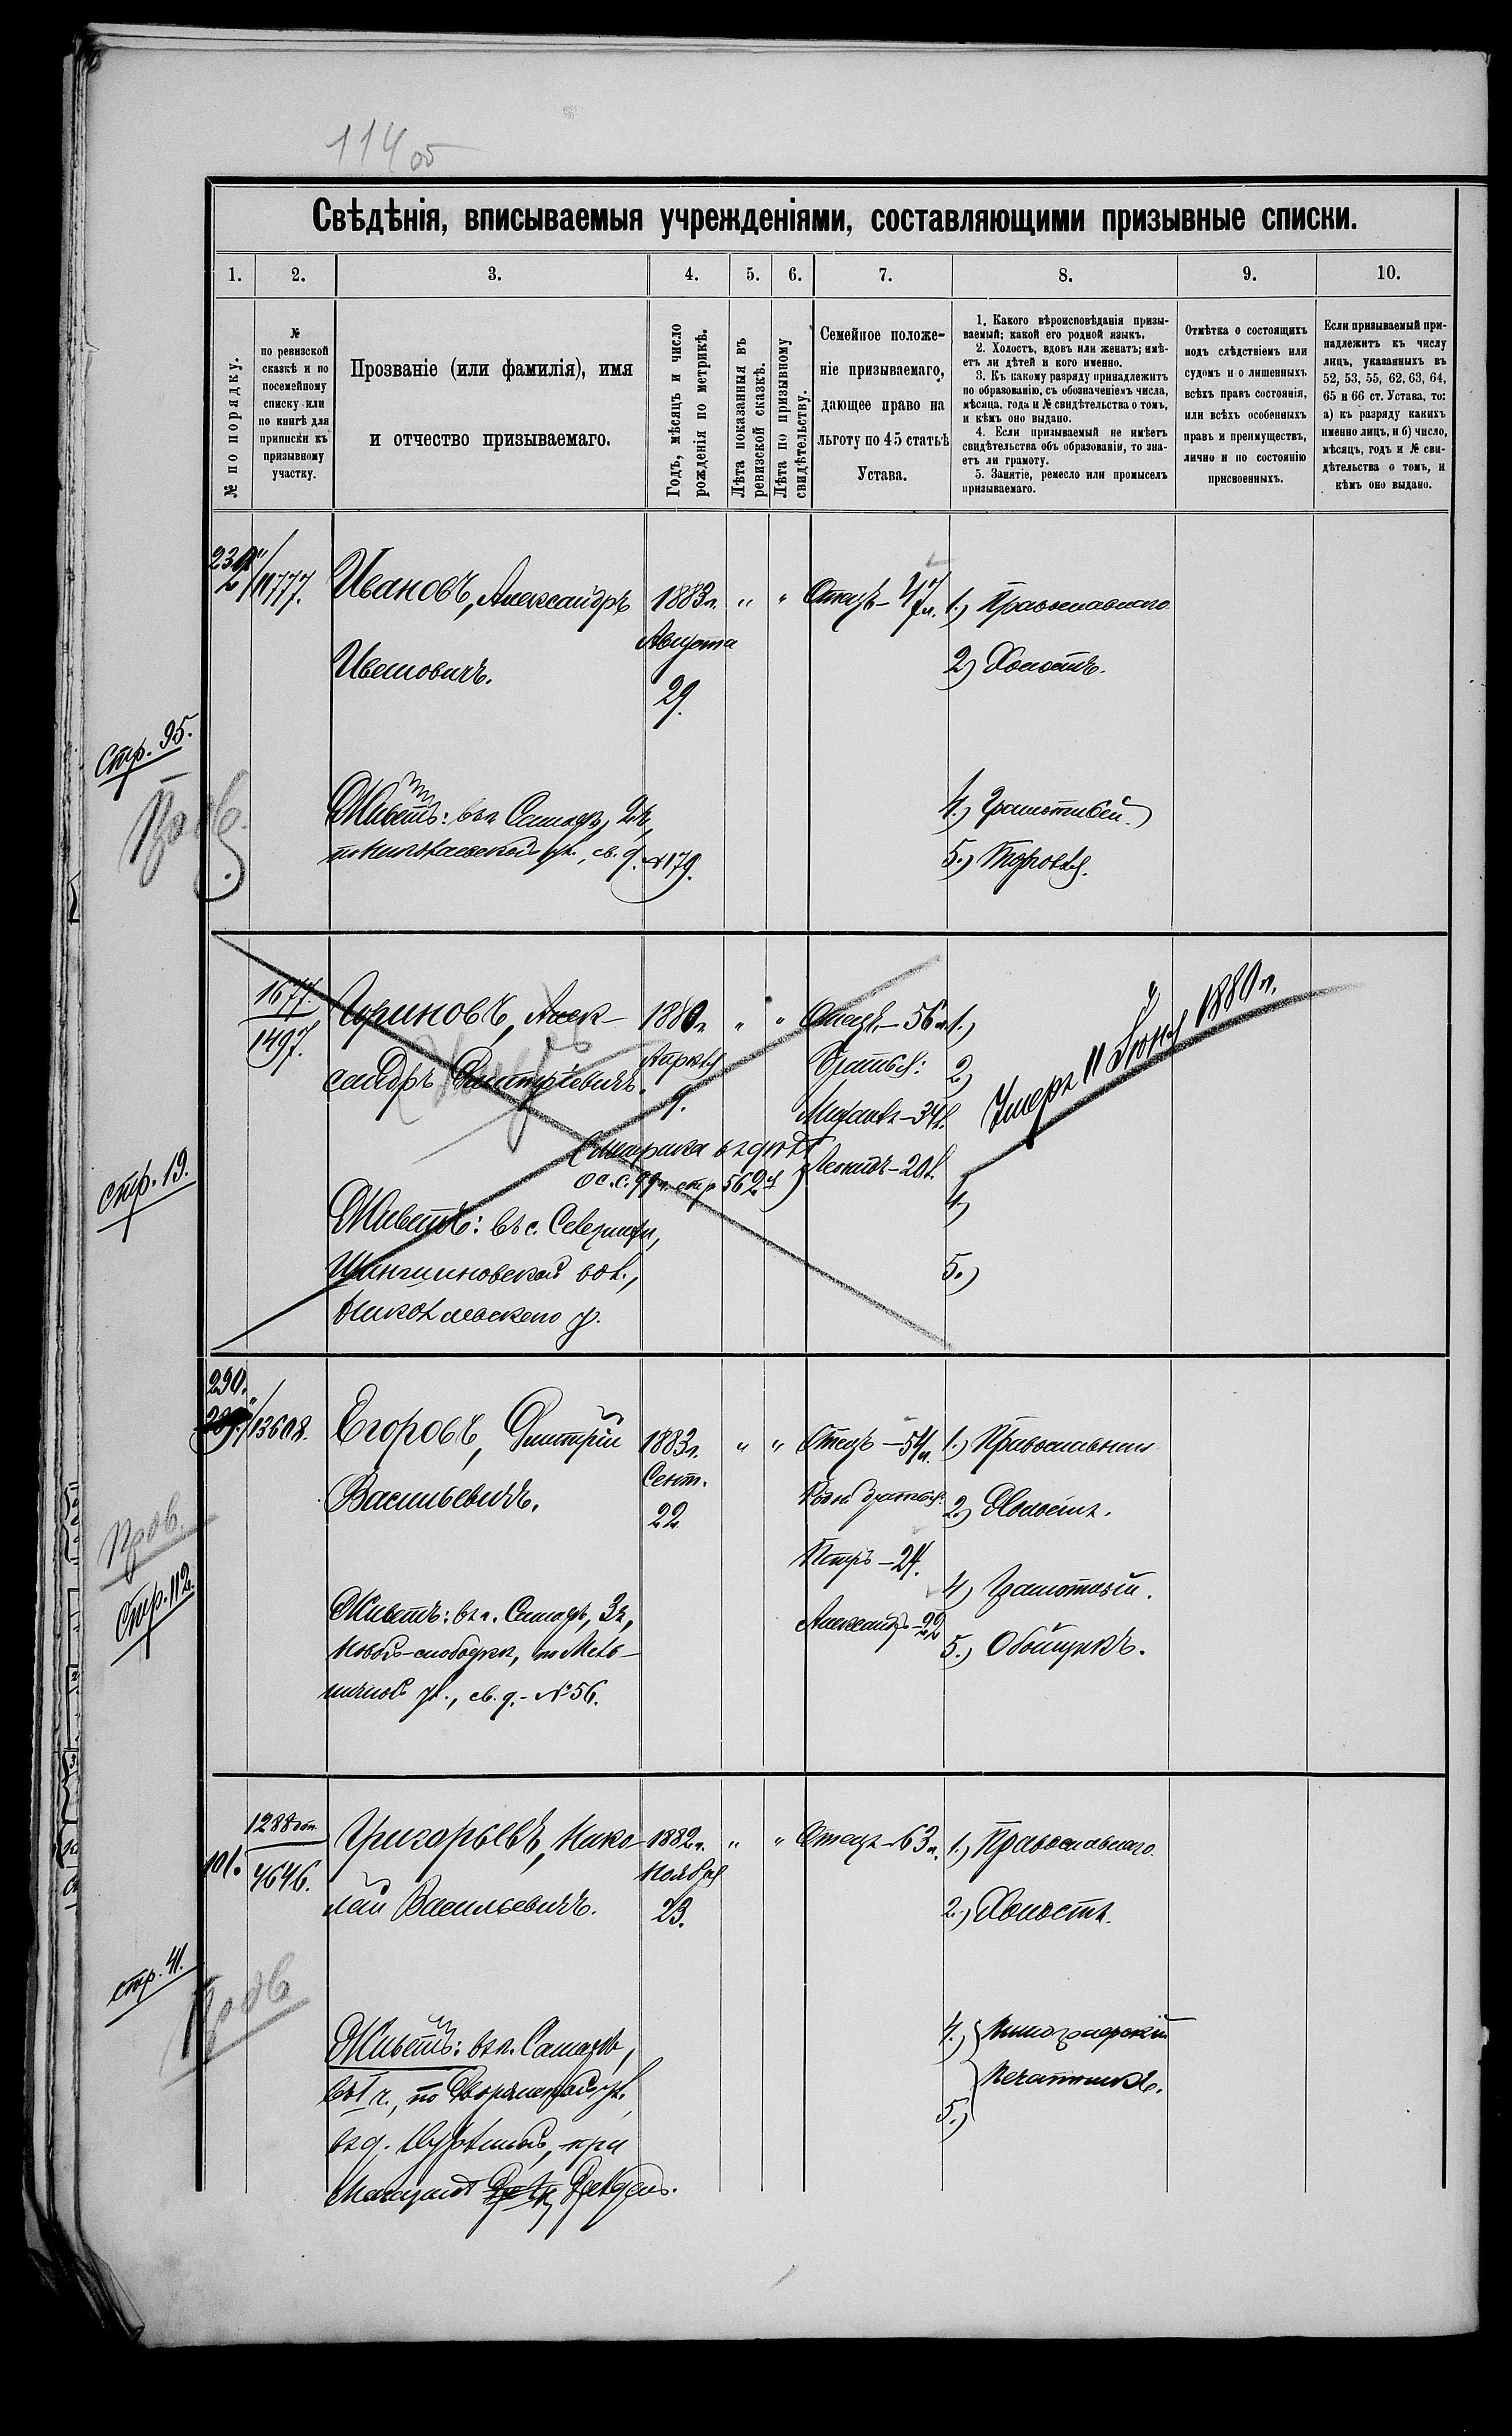 114 об
Свѣдѣнія, вписываемыя учрежденіями, составляющими призывные списки.
1. 2. 3. 4. 5. 6. 7. 8. 9. 10.
№ по порядку.
№
по ревизской
сказкѣ и по
посемейному
списку или
по книгѣ для
приписки къ
призывному
участку.
Прозваніе (или фамилія), имя
и отчество призываемаго.
Годъ, мѣсяцъ и число
рожденія по метрикѣ.
Лѣта показанныя въ
ревизской сказкѣ.
Лѣта по призывному
свидѣтельству.
Семейное положе-
ніе призываемаго,
дающее право на
льготу по 45 статьѣ
Устава.
1. Какого вѣроисповѣданія призы-
ваемый; какой его родной языкъ.
2. Холостъ, вдовъ или женатъ; имѣ-
етъ ли дѣтей и кого именно.
3. Къ какому разряду принадлежитъ
по образованію, съ обозначеніемъ числа,
мѣсяца, года и № свидѣтельства о томъ,
и кѣмъ оно выдано.
4. Если призываемый не имѣетъ
свидѣтельства объ образованіи, то зна-
етъ ли грамоту.
5. Занятіе, ремесло или промыселъ
призываемаго.
Отмѣтка о состоящихъ
подъ слѣдствіемъ или
судомъ и о лишенныхъ
всѣхъ правъ состоянія,
или всѣхъ особенныхъ
правъ и преимуществъ,
лично и по состоянію
присвоенныхъ.
Если призываемый при-
надлежитъ къ числу
лицъ, указанныхъ въ
52, 53, 55, 62, 63, 64,
65 и 66 ст. Устава, то:
а) къ разряду какихъ
именно лицъ, и б) число,
мѣсяцъ, годъ и № сви-
дѣтельства о томъ, и
кѣмъ оно выдано.
11777. Ивановъ, Александръ 1883г. " " Отецъ-47л. 1.) Православнаго
Августа
Ивановичъ. 29. 2) Холостъ.
Стр. 95.
Пров.
Живетъ: въ г. Самарѣ, 2ч, 4.) Грамотный.
по Николаевской ул., св. д. №179. 5.) Торговля.
1677.
1497.
Чуриновъ, Алек- 1880г. " " Отецъ-56л. 1.)
сандръ Дмитріевичъ. Апрѣля 9. Братья: 2)
Михаилъ-34л.
Умеръ 11 Іюня 1880г.
(метрика въ дѣлѣ
о с. с. 99г. стр 562) Леонидъ-20л.
4)
стр. 19.
Живетъ: въ с.
вол., 5.)
Николаевскаго у.
290.
13608. Егоровъ, Дмитрій 1883г. " " Отецъ-54л. 1.) Православнаго
Сент.
Васильевичъ. 22 Родн. братья: 2) Холостъ.
Петръ-24.
Пров.
Стр. 112.
4) Грамотный.
Живетъ: въ г. Самарѣ, 3ч, Александръ-22
Новой-слободкѣ, по Мель- 5.) Обойщикъ.
ничной ул., св. д.-№56.
101. 1288
4646.
Григорьевъ, Нико- 1882г. " " Отецъ-63л. 1.) Православнаго.
Ноября
лай Васильевичъ. 23. 2.) Холостъ.
стр. 41.
Пров
Живетъ: въ г. Самарѣ, 4.)
въ I ч., по Дворянской ул., печатникъ.
въ д. при 5.)
магазинѣ